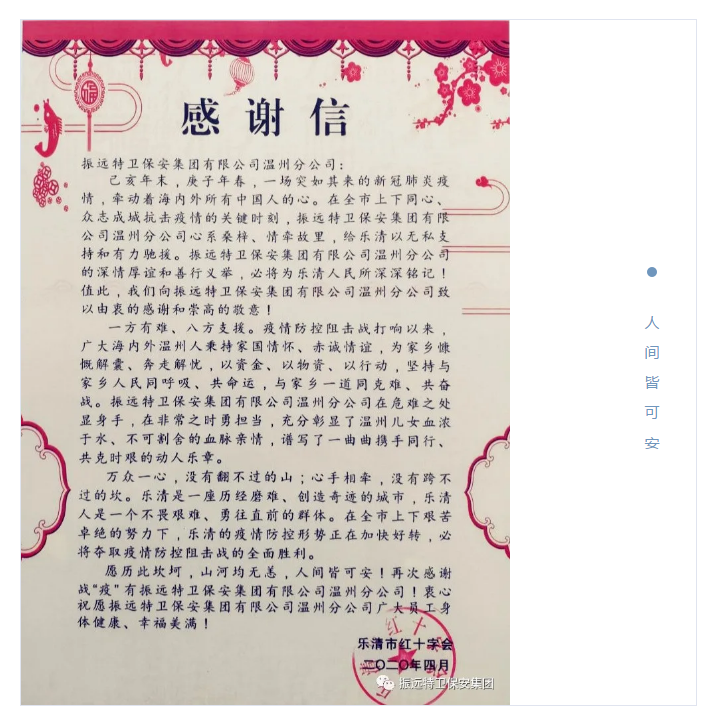 感谢信
振远特卫保安集团有限公司温州分公司：
己亥年末，庚子年春，一场突如其来的新冠肺炎疫
情，牵动着海内外所有中国人的心。在全市上下同心、
众志成城抗击疫情的关键时刻，振远特卫保安集团有限
公司温州分公司心系桑梓、情牵故里，给乐清以无私支
持和有力驰援。振远特卫保安集团有限公司温州分公司
的深情厚谊和善行义举，必将为乐清人民所深深铭记！
值此，我们向振远特卫保安集团有限公司温州分公司致
以由衷的感谢和崇高的敬意！
一方有难、八方支援。疫情防控阻击战打响以来，
广大海内外温州人秉持家国情怀、赤诚情谊，为家乡慷
慨解囊、奔走解忧，以资金、以物资、以行动，坚持与
家乡人民同呼吸、共命运，与家乡一道同克难、共奋
战。振远特卫保安集团有限公司温州分公司在危难之处
显身手，在非常之时勇担当，充分彰显了温州儿女血浓
于水、不可割舍的血脉亲情，谱写了一曲曲携手同行、
共克时艰的动人乐章。
万众一心，没有翻不过的山；心手相牵，没有跨不
过的坎。乐清是一座历经磨难、创造奇迹的城市，乐清
人是一个不畏艰难、勇往直前的群体。在全市上下艰苦
卓绝的努力下，乐清的疫情防控形势正在加快好转，必
将夺取疫情防控阻击战的全面胜利。
愿历此坎坷，山河均无恙，人间皆可安！再次感谢
战“疫”有振远特卫保安集团有限公司温州分公司！衷心
祝愿振远特卫保安集团有限公司温州分公司广大员工身
体健康、幸福美满！
乐清市红十字会
二〇二〇年四月
振远特卫保安集团
人间皆可安